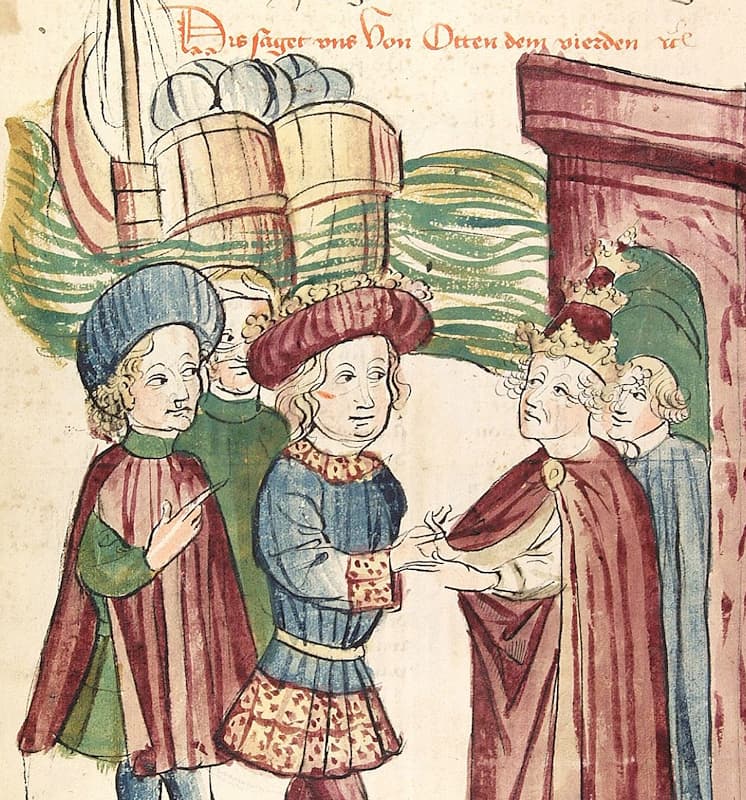 Dis saget vns Von Otten dem vierden ꝛcꝭ